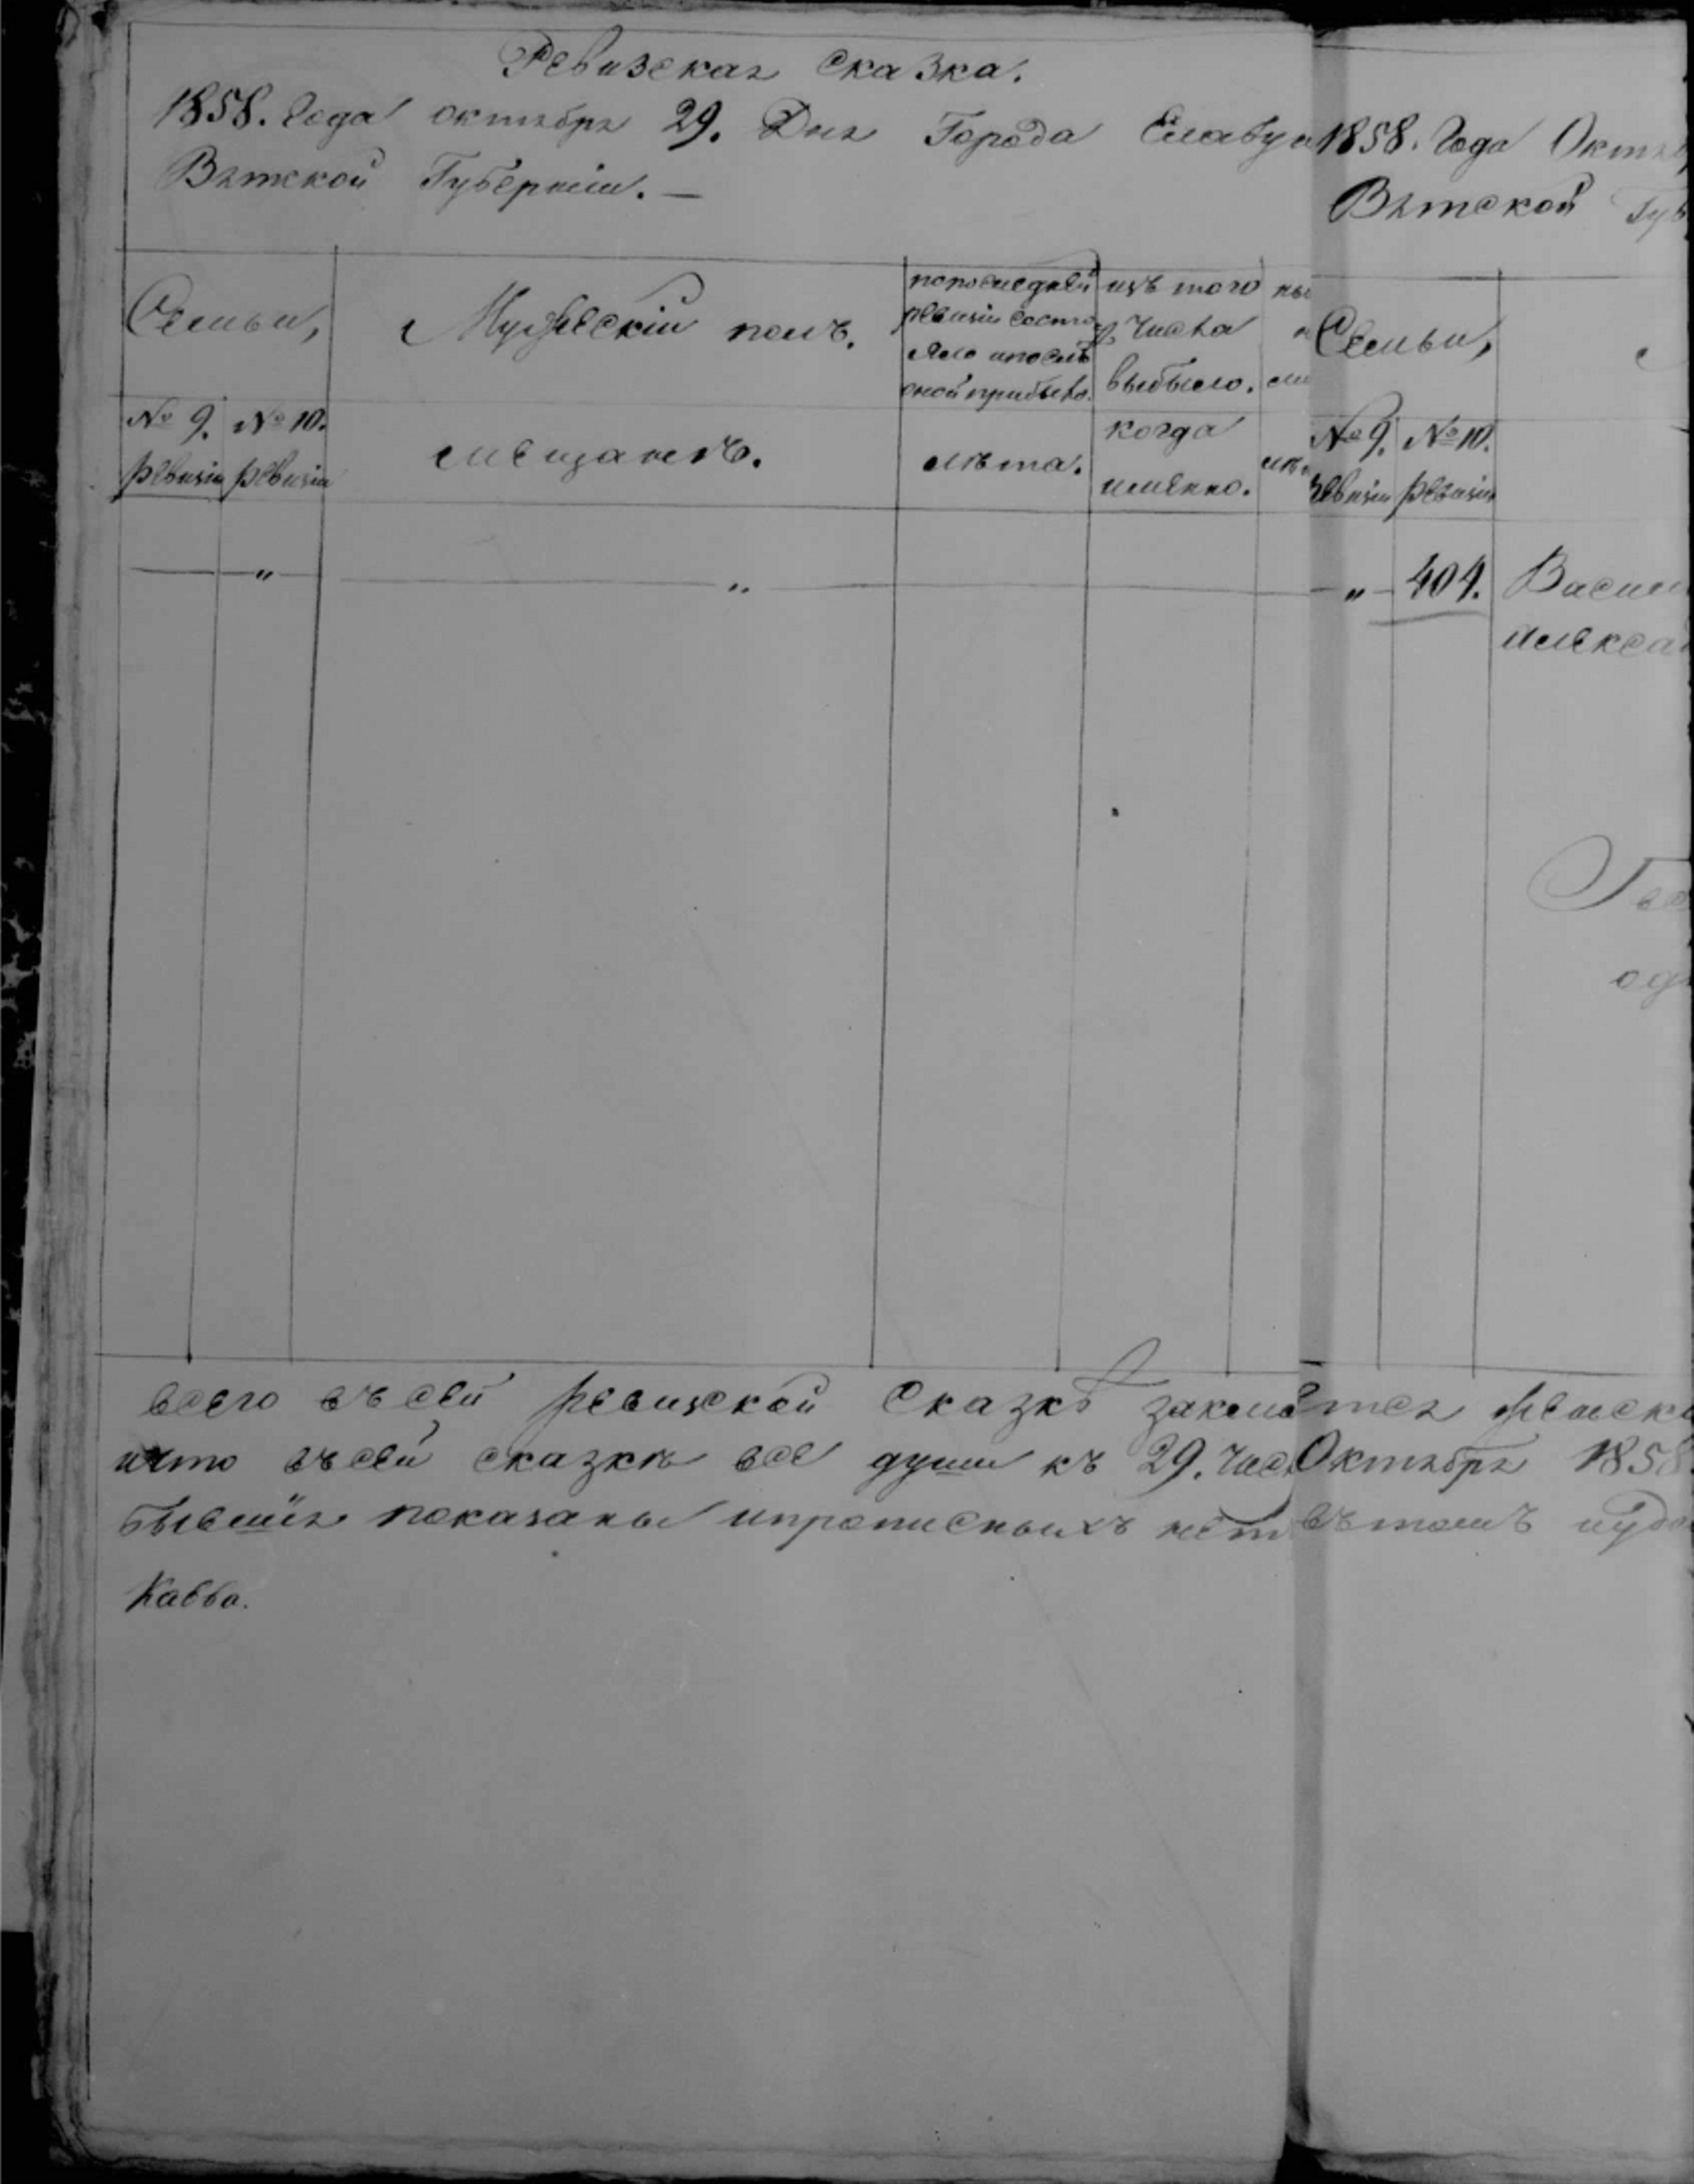 Ревизская сказка.
1858. Года октября 29. Дня Города Елабу
Вятской Губернiи. —
Семьи,
Мужескiй полъ.
попоследней
ревизiи состо
яло ипослѣ
оной прибыло.
изъ того
числа
выбыло.
№ 9. № 10.
ревизiи ревизiи
мещанъ.
лѣта.
когда
именно.
" "
всего въ сей ревизской сказкѣ
что въ сей сказкѣ все души къ 29.
бывшiя показаны ипрописныхъ
1858. Года Октя
Вятской Губ
Семьи,
№ 9. № 10.
ревизiи ревизiи
" 404. Васил
Алекса
од
Октября 1858.
въ томъ